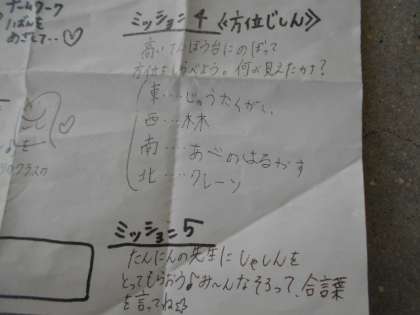 チームワーク
パズルを
めざして…♡
ミッション4 《方位じしん》
高いてんぼう台にのぼって
方位をしらべよう。何が見えたかな?
東…じゅうたくがい
西…木木
南…あべのはるかす
北…クレーン
ミッション5
たんにんの先生にしゃしんを
とってもらおう♪み〜んなそろって、合言葉
を言ってね☆